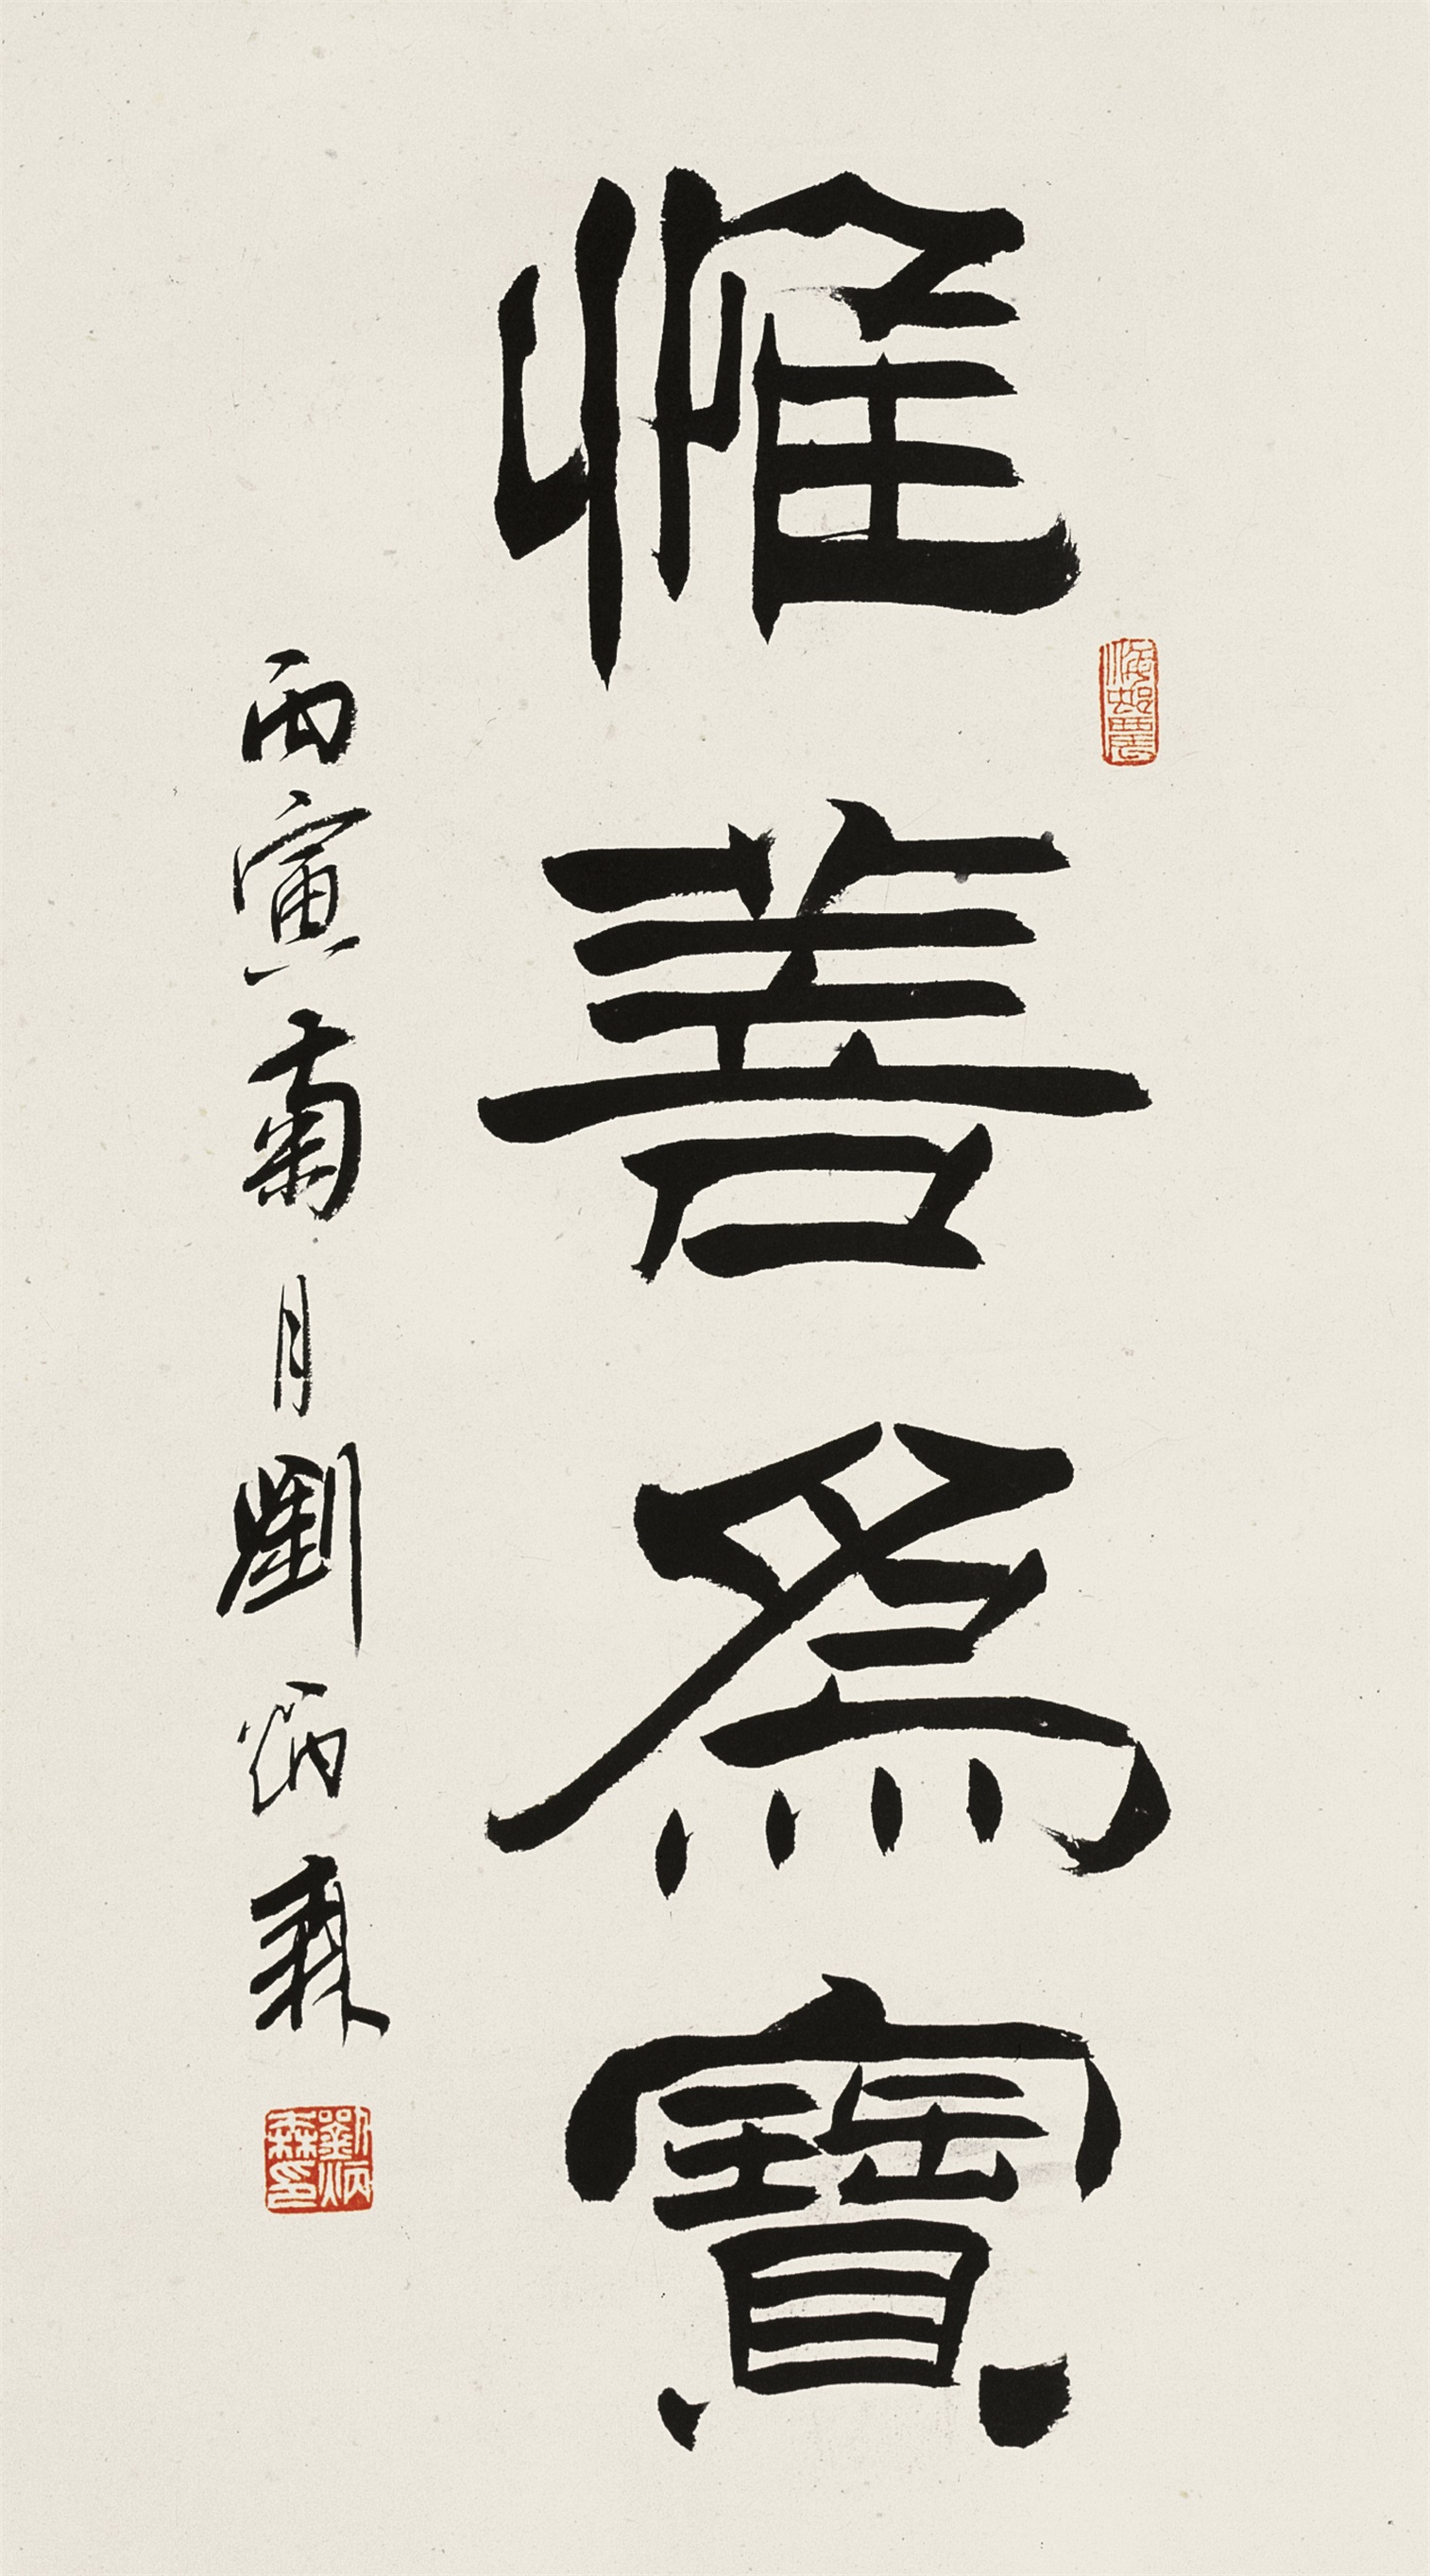 惟善為寶
丙寅菊月劉炳森
劉炳森印